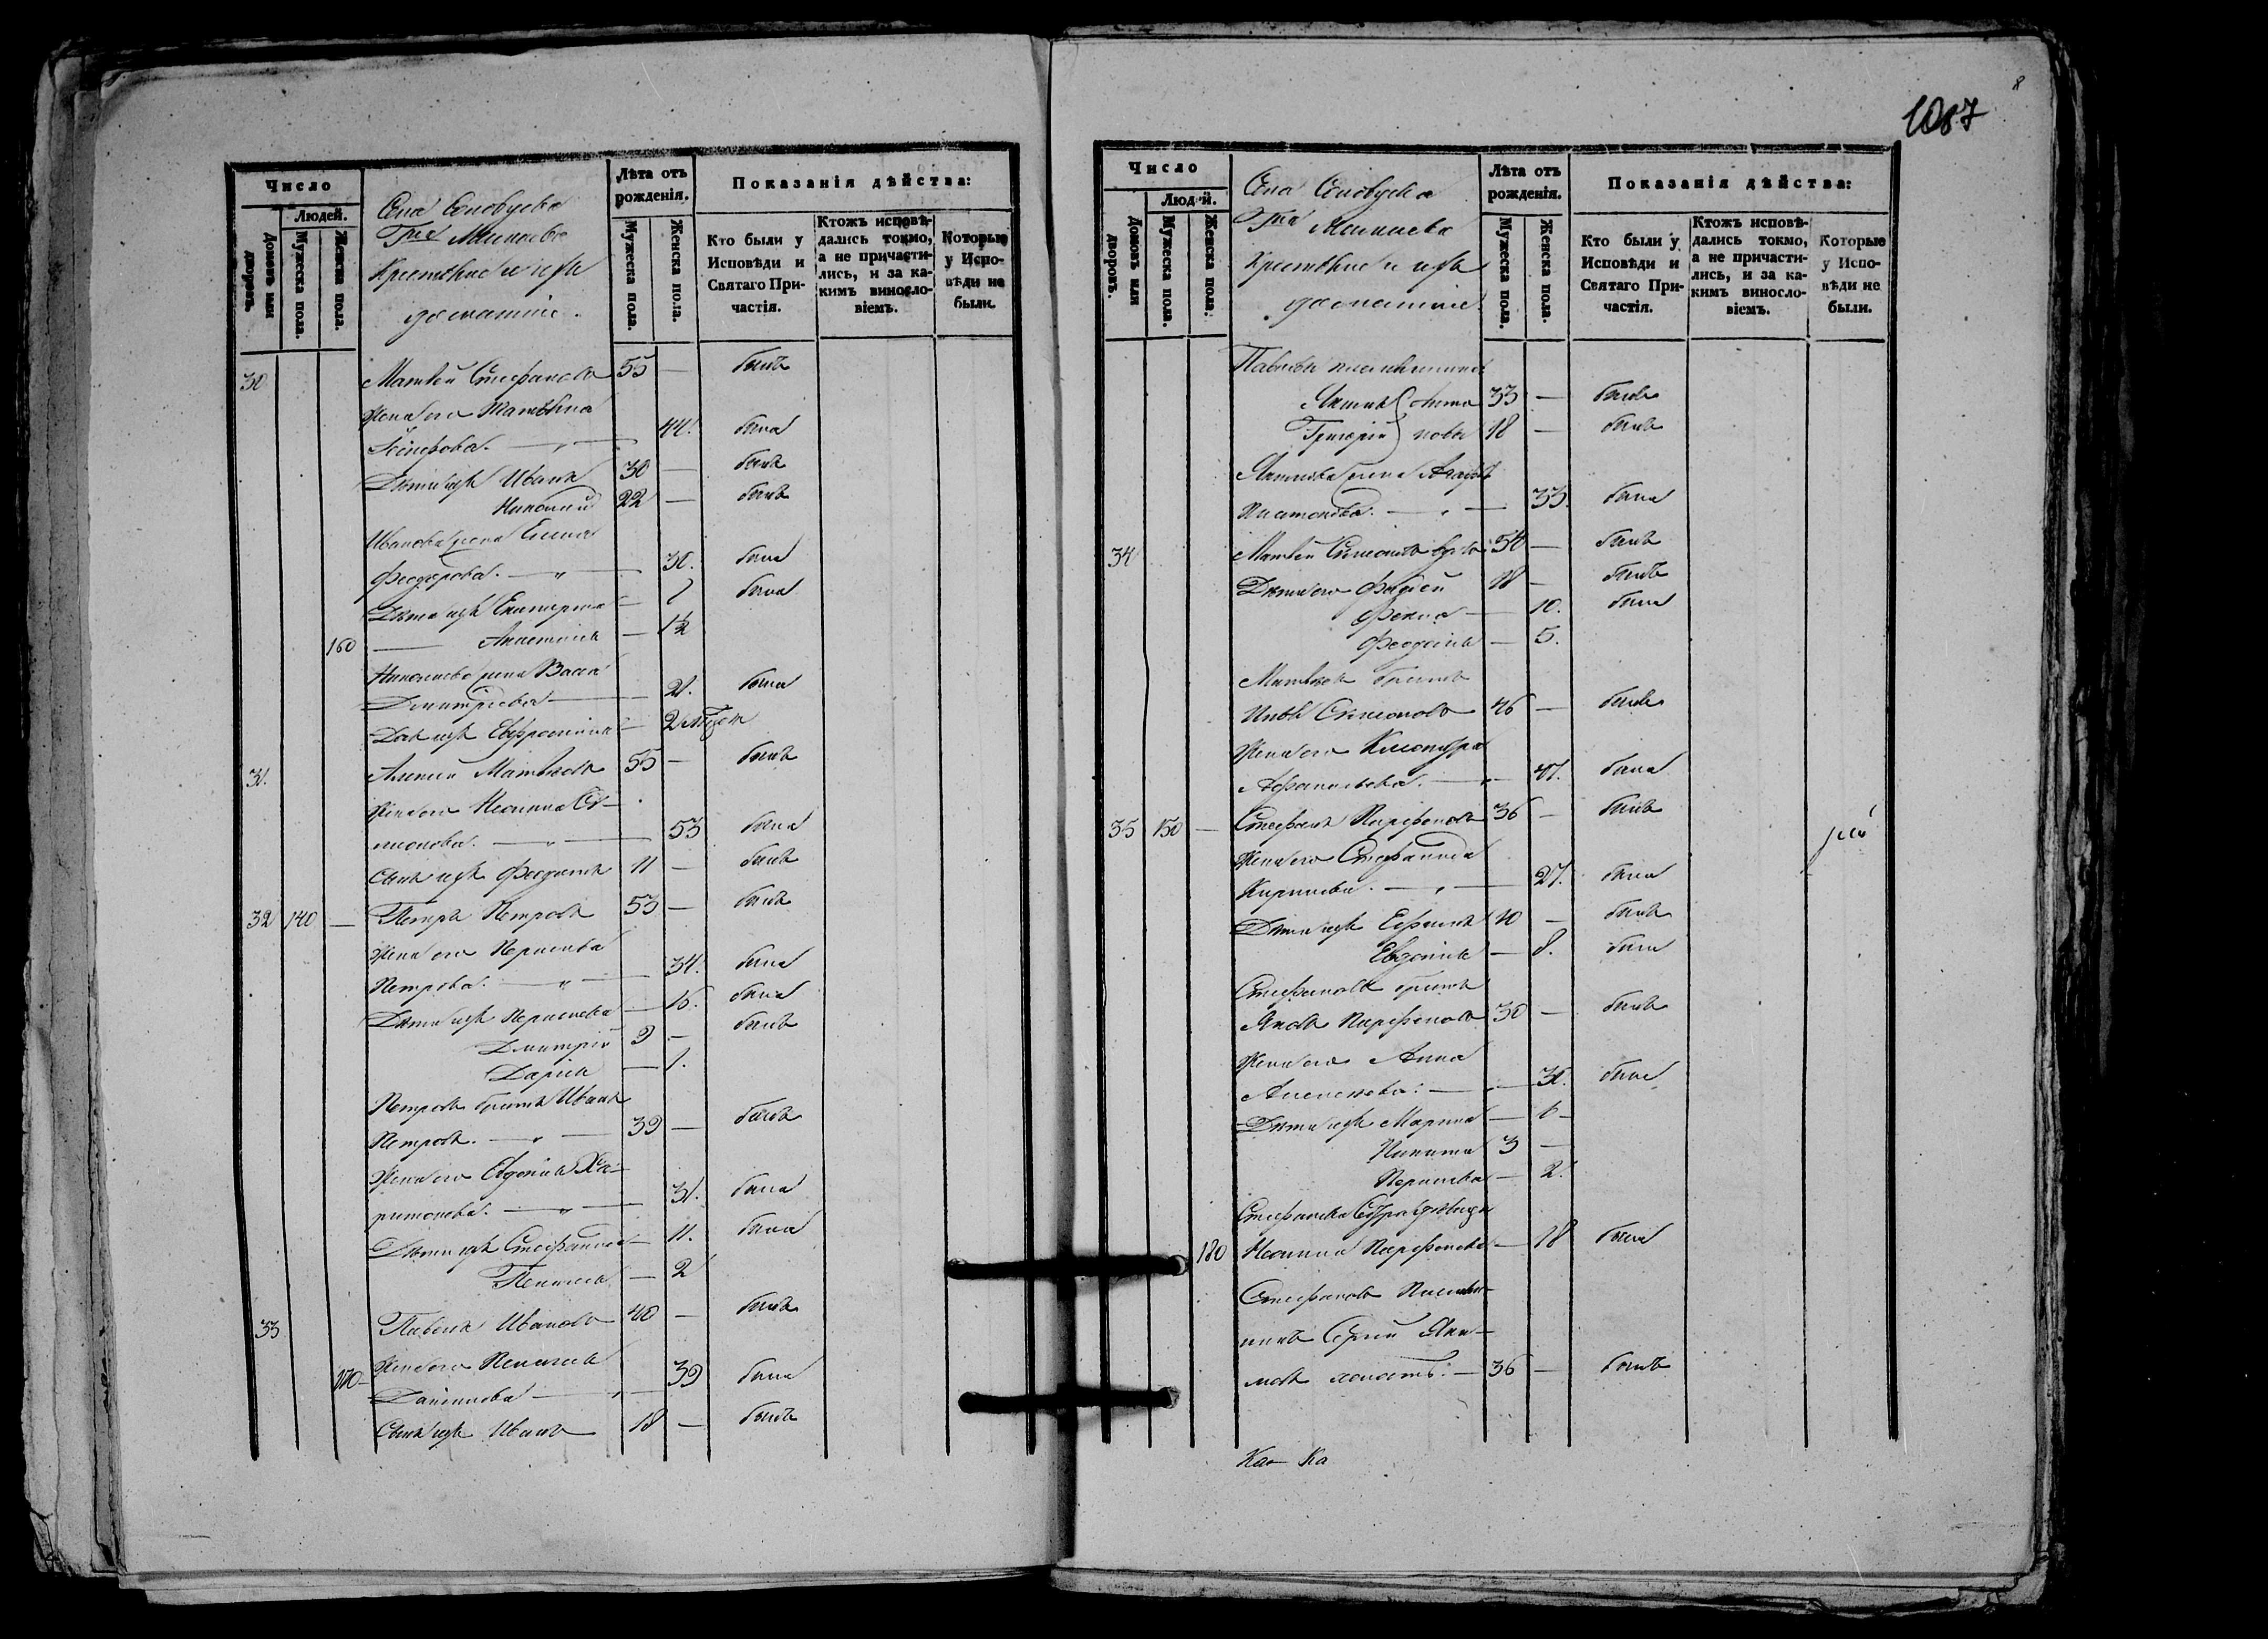 8
1087
Число
Людей.
Домовъ или дворовъ.
Мужеска пола.
Женска пола.
Крестьяне и ихъ
домашніе.
Лѣта отъ рожденія.
Мужеска пола.
Женска пола.
Показанія дѣйства:
Кто были у Исповѣди и Святаго Причастія.
Ктожъ исповѣдались токмо, а не причастились, и за какимъ винословіемъ.
Которые у Исповѣди не были.
30 Матвей Стефановъ 55 — былъ
Жена его
44. была
Дѣти ихъ Иванъ 30 — былъ
Николай 22 — былъ
Иванова жена Елена
Феодорова. — 30. была
Дѣти ихъ Екатерина — 7 была
160 Анастасія — 1½
Николаева жена Васса
Димитріева — 21. была
Дочь ихъ Евфросинія — 2
31. Алексей Матвеевъ 55 — былъ
Жена его
53 была
Сынъ ихъ Феодотъ 11 — былъ
32 140 — Петръ Петровъ 53 — былъ
Жена его Параскева
Петрова. — 34. была
Дѣти ихъ Параскева — 15. была
Димитрій 9 — былъ
Дарія — 1.
Петровъ братъ Иванъ
Петровъ. — 39 — былъ
Жена его Евдокія Ха-
ритонова. — 31. была
Дѣти ихъ Стефанида — 11. была
Пелагея — 2
33 Павелъ Ивановъ 40 — былъ
170 Жена его Пелагея
Даніилова — 39 была
Сынъ ихъ Иванъ 18 — былъ
Число
Людей.
Домовъ или дворовъ.
Мужеска пола.
Женска пола.
Крестьяне и ихъ
домашніе.
Лѣта отъ рожденія.
Мужеска пола.
Женска пола.
Показанія дѣйства:
Кто были у Исповѣди и Святаго Причастія.
Ктожъ исповѣдались токмо, а не причастились, и за какимъ винословіемъ.
Которые у Исповѣди не были.
Павловы племянники
33 — былъ
Григорій 18 — былъ
жена
Платонова. — 33. была
34 Матвей Симеоновъ вдовъ 50 — былъ
Дѣти его Фадей 18 — былъ
Фекла — 10. была
Феодосія — 5.
Матвеевъ братъ
Симеоновъ 46 — былъ
Жена его Клеопатра
Афанасьева. — 47. была
35 150 — Стефанъ Парфеновъ 36 — былъ
Жена его Стефанида
Кирилова. — 27. была
Дѣти ихъ Ефимъ 10 — былъ
Евдокія — 8. была
Стефановъ братъ
Яковъ Парфеновъ 30 — былъ
Жена его Анна
Алексеева. — 30. была
Дѣти ихъ Марина — 6
Никита 3 —
Параскева — 2.
Стефанова сестра девица
180 Парфенова — 18 была
Стефановъ племян-
никъ Сергей Яки-
мовъ холостъ. — 36 — былъ